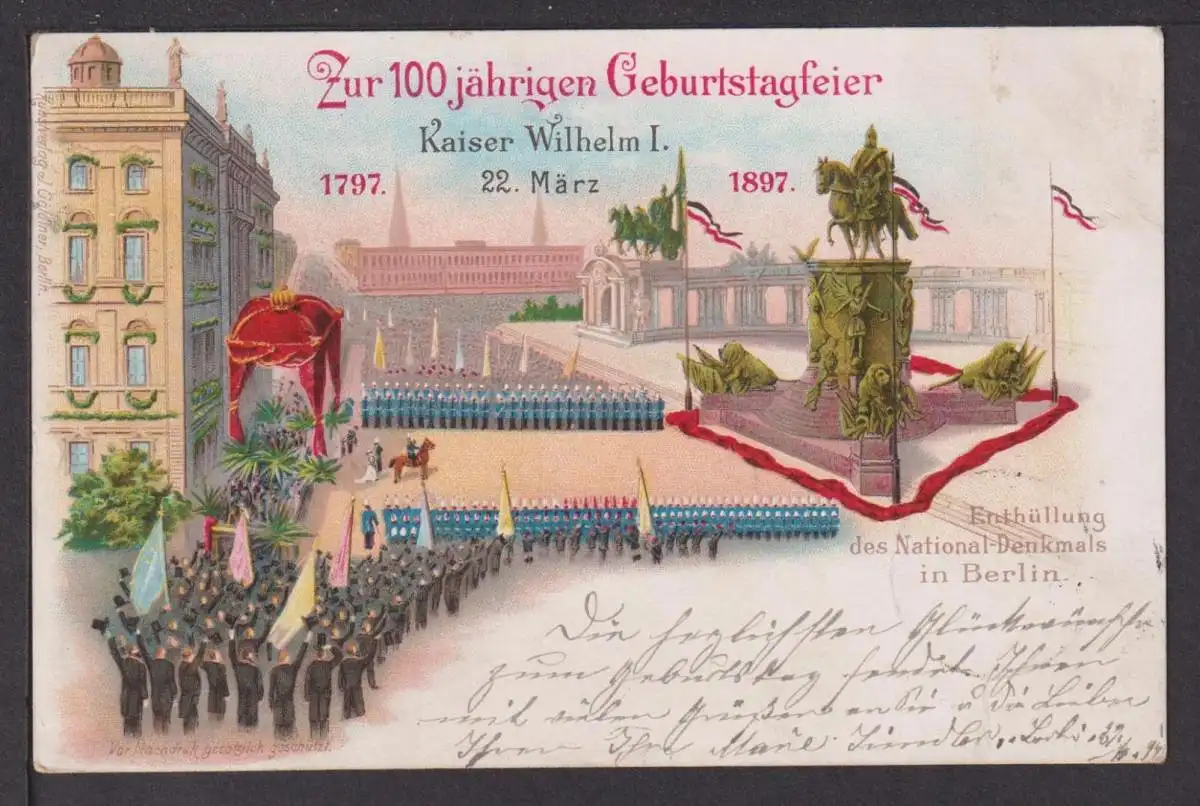 Zur 100 jährigen Geburtstagfeier
Kaiser Wilhelm I.
1797. 22. März 1897.
Kunstverlag J. Goldiner, Berlin.
Enthüllung
des National-Denkmals
in Berlin.
Die herzlichsten Glückwünsche
zum Geburtstag sendet Ihnen
mit vielen Grüßen an Sie u die Lieben
Ihren Ihre
Vor Nachdruck gesetzlich geschützt.